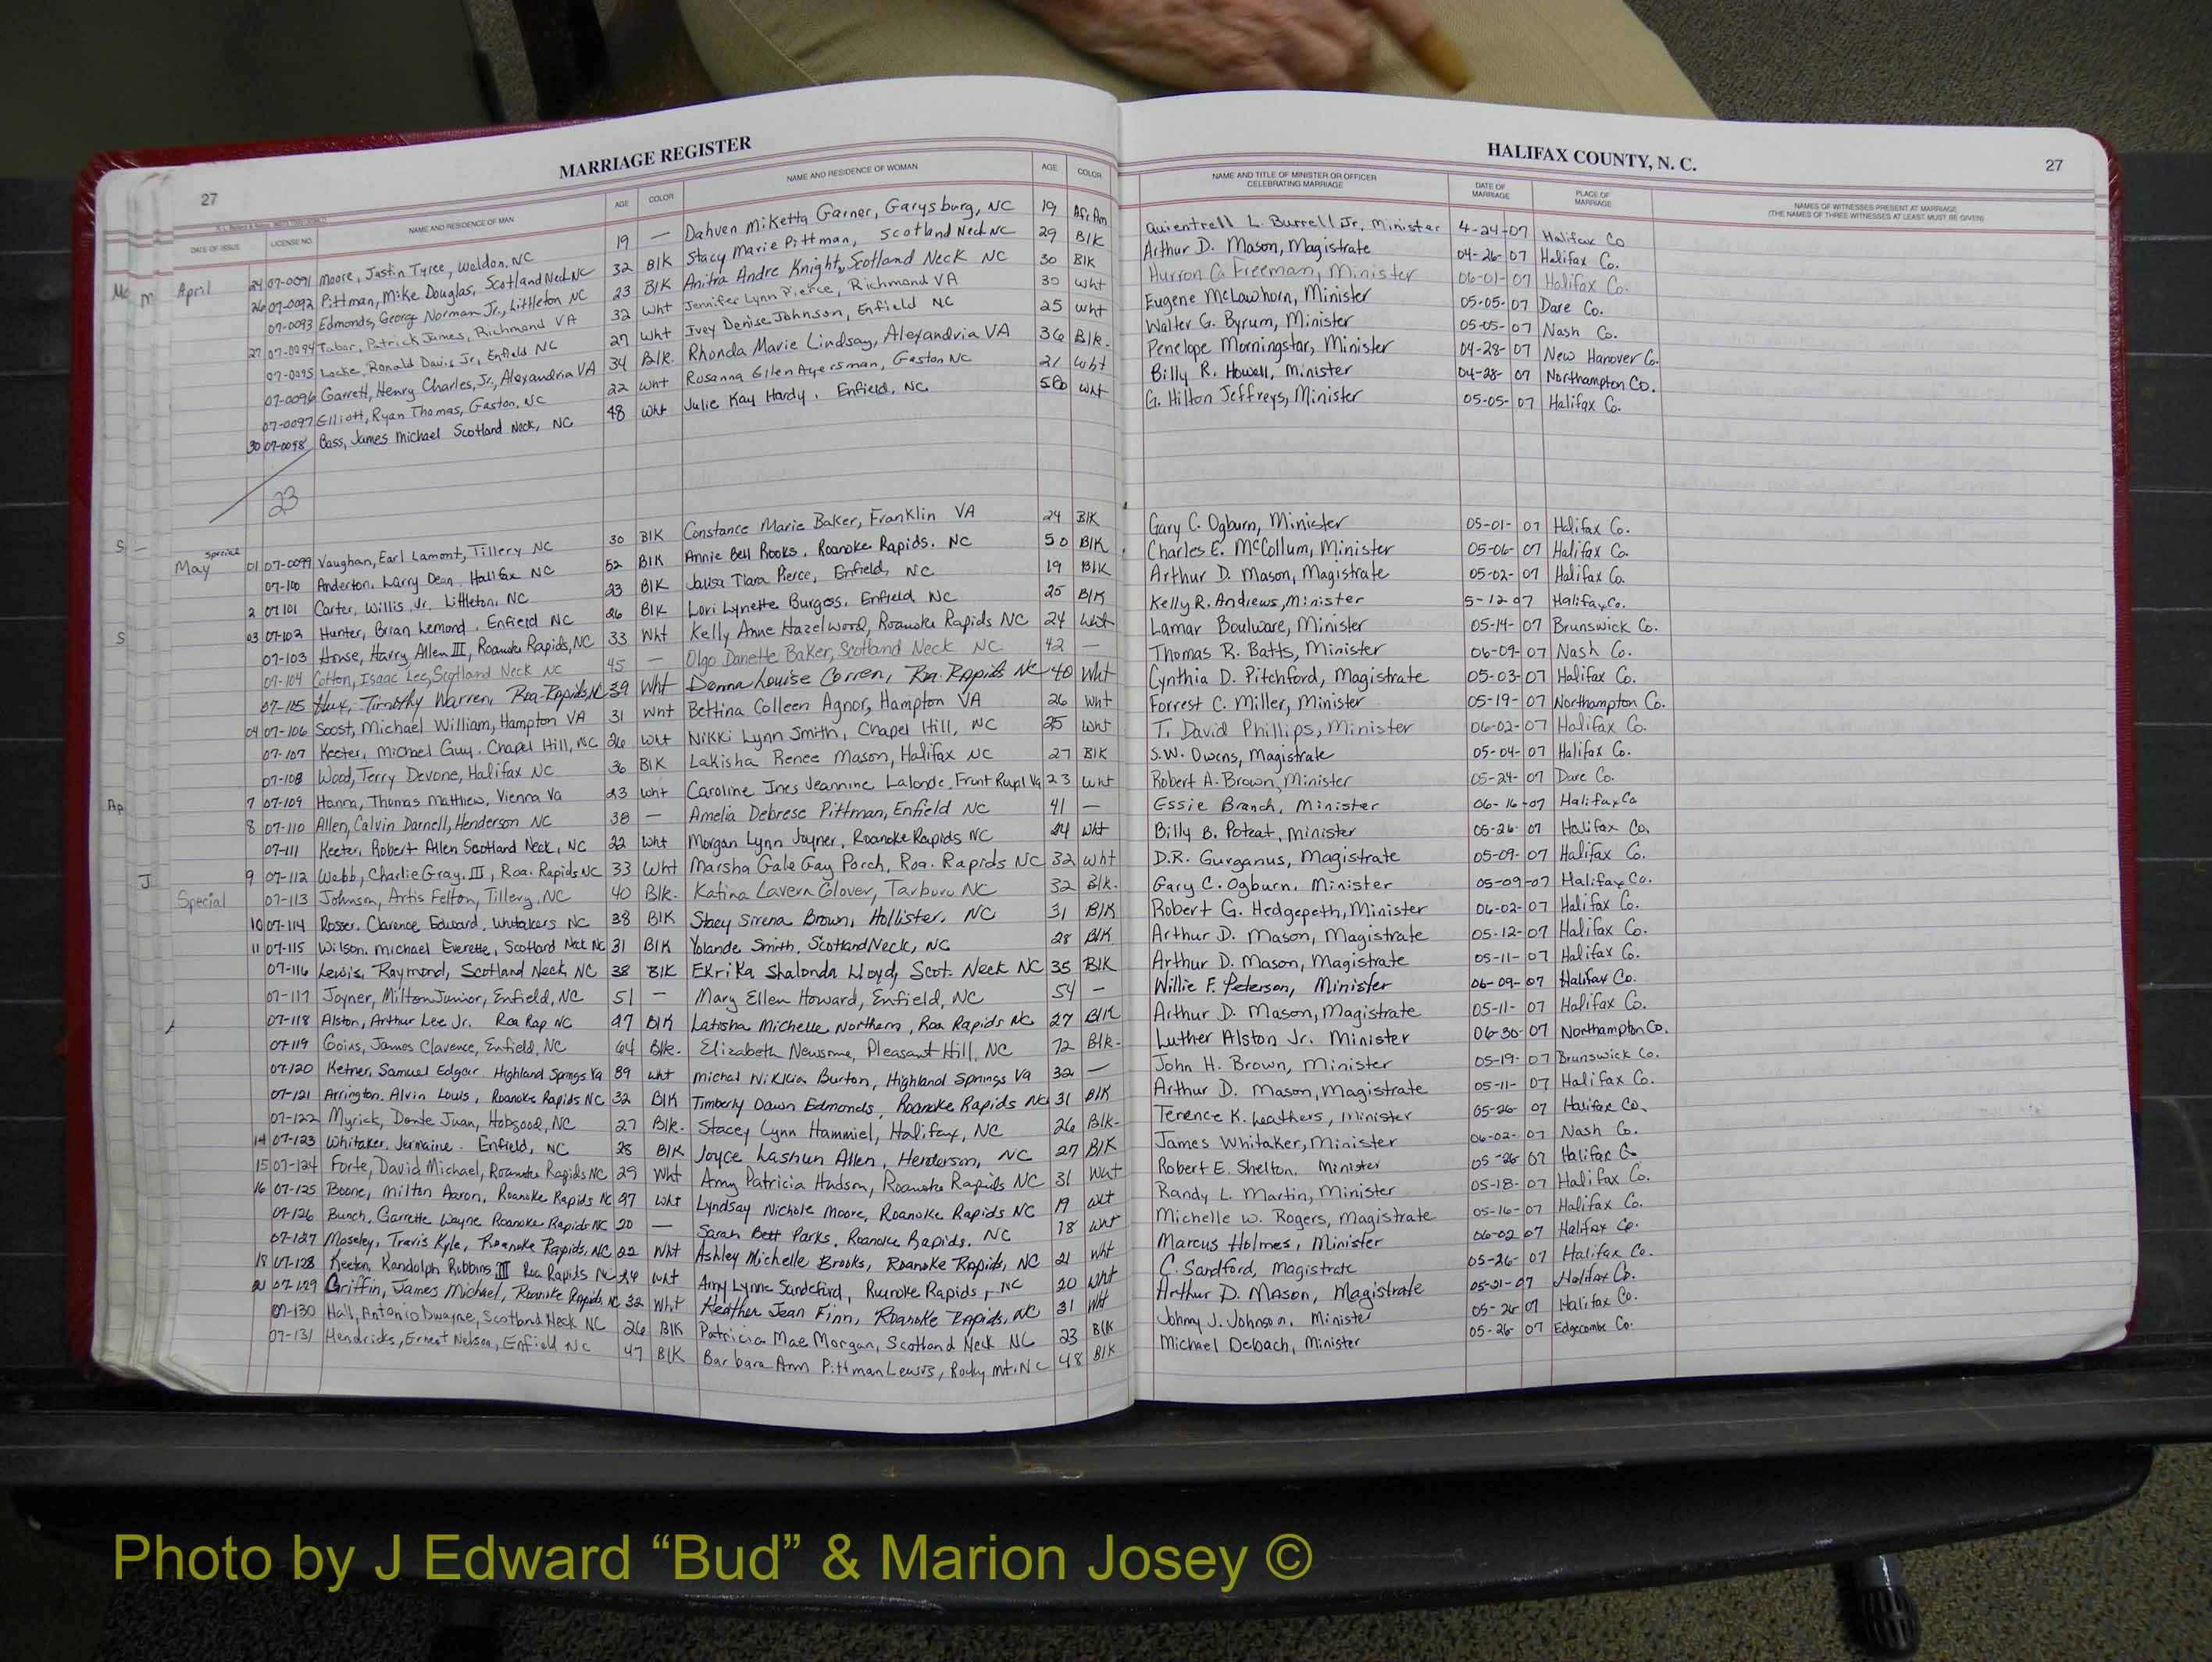 MARRIAGE REGISTER
HALIFAX COUNTY, N. C.
27
27
DATE OF ISSUE LICENSE NO. NAME AND RESIDENCE OF MAN AGE COLOR NAME AND RESIDENCE OF WOMAN AGE COLOR NAME AND TITLE OF MINISTER OR OFFICER CELEBRATING MARRIAGE DATE OF MARRIAGE PLACE OF MARRIAGE NAMES OF WITNESSES PRESENT AT MARRIAGE (THE NAMES OF THREE WITNESSES AT LEAST MUST BE GIVEN)
April 24 07-0091 Moore, Justin Tyree, Weldon, NC 19 — Dahven Miketta Garner, Garysburg, NC 19 Afr. Am Quientrell L. Burrell Jr, Minister 4-24-07 Halifax Co
26 07-0092 Pittman, Mike Douglas, Scotland Neck NC 32 Blk Stacy Marie Pittman, Scotland Neck NC 29 Blk Arthur D. Mason, Magistrate 04-26-07 Halifax Co.
07-0093 Edmonds, George Norman Jr., Littleton NC 23 Blk Anitra Andre Knight, Scotland Neck NC 30 Blk Hurron C. Freeman, Minister 06-01-07 Halifax Co.
27 07-0094 Tabor, Patrick James, Richmond VA 32 Wht Jennifer Lynn Pierce, Richmond VA 30 Wht Eugene McLawhorn, Minister 05-05-07 Dare Co.
07-0095 Locke, Ronald Davis Jr, Enfield NC 27 Wht Ivey Denise Johnson, Enfield NC 25 Wht Walter G. Byrum, Minister 05-05-07 Nash Co.
07-0096 Garrett, Henry Charles, Jr., Alexandria VA 34 Blk. Rhonda Marie Lindsay, Alexandria VA 36 Blk. Penelope Morningstar, Minister 04-28-07 New Hanover Co.
07-0097 Elliott, Ryan Thomas, Gaston, NC 22 Wht Rosanna Ellen Ayersman, Gaston NC 21 Wht Billy R. Howell, Minister 04-28-07 Northampton Co.
30 07-0098 Bass, James Michael Scotland Neck, NC 48 Wht Julie Kay Hardy, Enfield, NC Wht G. Hilton Jeffreys, Minister 05-05-07 Halifax Co.
23
May special 01 07-0099 Vaughan, Earl Lamont, Tillery NC 30 Blk Constance Marie Baker, Franklin VA 24 Blk Gary C. Ogburn, Minister 05-01-07 Halifax Co.
07-100 Anderton, Larry Dean, Halifax NC 52 Blk Annie Bell Rooks, Roanoke Rapids, NC 50 Blk Charles E. McCollum, Minister 05-06-07 Halifax Co.
2 07101 Carter, Willis Jr. Littleton, NC 23 Blk Tiara Pierce, Enfield, NC 19 Blk Arthur D. Mason, Magistrate 05-02-07 Halifax Co.
03 07-102 Hunter, Brian Lemond, Enfield NC 26 Blk Lori Lynette Burgess, Enfield NC 25 Blk Kelly R. Andrews, Minister 5-12-07 Halifax Co.
07-103 House, Harry Allen III, Roanoke Rapids, NC 33 Wht Kelly Anne Hazelwood, Roanoke Rapids NC 24 Wht Lamar Boulware, Minister 05-14-07 Brunswick Co.
07-104 Cotten, Isaac Lee, Scotland Neck NC 45 — Olga Danette Baker, Scotland Neck NC 42 — Thomas R. Batts, Minister 06-09-07 Nash Co.
07-105 Hux, Timothy Warren, Roa-Rapids, NC 39 Wht Donna Louise Corren, Roa. Rapids NC 40 Wht Cynthia D. Pitchford, Magistrate 05-03-07 Halifax Co.
04 07-106 Soost, Michael William, Hampton VA 31 Wht Bettina Colleen Agnor, Hampton VA 26 Wht Forrest C. Miller, Minister 05-19-07 Northampton Co.
07-107 Keeter, Michael Guy, Chapel Hill, NC 26 Wht Nikki Lynn Smith, Chapel Hill, NC 25 Wht T. David Phillips, Minister 06-02-07 Halifax Co.
07-108 Wood, Terry Devone, Halifax NC 36 Blk Lakisha Renee Mason, Halifax NC 27 Blk S.W. Owens, Magistrate 05-04-07 Halifax Co.
7 07-109 Hanna, Thomas Matthew, Vienna Va 23 Wht Caroline Ines Jeannine Lalonde, Front Royal Va 23 Wht Robert A. Brown, Minister 05-24-07 Dare Co.
8 07-110 Allen, Calvin Darnell, Henderson NC 38 — Amelia Debrese Pittman, Enfield NC 41 — Essie Branch, Minister 06-16-07 Halifax Co
07-111 Keeter, Robert Allen Scotland Neck, NC 22 Wht Morgan Lynn Joyner, Roanoke Rapids NC 24 Wht Billy B. Poteat, Minister 05-26-07 Halifax Co.
9 07-112 Webb, Charlie Gray, III, Roa. Rapids NC 33 Wht Marsha Gale Gay Porch, Roa. Rapids NC 32 Wht D.R. Gurganus, Magistrate 05-09-07 Halifax Co.
Special 07-113 Johnson, Artis Felton, Tillery, NC 40 Blk. Katina Lavern Glover, Tarboro NC 32 Blk. Gary C. Ogburn, Minister 05-09-07 Halifax Co.
10 07-114 Rosser, Clarence Edward, Whitakers NC 38 Blk Stacy Sirena Brown, Hollister, NC 31 Blk Robert G. Hedgepeth, Minister 06-02-07 Halifax Co.
11 07-115 Wilson, Michael Everette, Scotland Neck NC 31 Blk Yolande Smith, Scotland Neck, NC 28 Blk Arthur D. Mason, Magistrate 05-12-07 Halifax Co.
07-116 Lewis, Raymond, Scotland Neck, NC 38 Blk Ekrika Shalonda Lloyd, Scot. Neck NC 35 Blk Arthur D. Mason, Magistrate 05-11-07 Halifax Co.
07-117 Joyner, Milton Junior, Enfield, NC 51 — Mary Ellen Howard, Enfield, NC 54 — Willie F. Peterson, Minister 06-09-07 Halifax Co.
07-118 Alston, Arthur Lee Jr. Roa Rap NC Blk Latisha Michelle Northern, Roa Rapids NC 27 Blk Arthur D. Mason, Magistrate 05-11-07 Halifax Co.
07-119 Goins, James Clarence, Enfield, NC 64 Blk. Elizabeth Newsome, Pleasant Hill, NC 72 Blk- Luther Alston Jr. Minister 06-30-07 Northampton Co.
07-120 Ketner, Samuel Edgar Highland Springs Va 39 Wht Michal Nikkia Burton, Highland Springs Va 32 — John H. Brown, Minister 05-19-07 Brunswick Co.
07-121 Arrington, Alvin Louis, Roanoke Rapids NC 32 Blk Timberly Dawn Edmonds, Roanoke Rapids NC 31 Blk Arthur D. Mason, Magistrate 05-11-07 Halifax Co.
07-122 Myrick, Donte Juan, Hobgood, NC 27 Blk. Stacey Lynn Hammiel, Halifax, NC 26 Blk- Terence K. Leathers, Minister 05-26-07 Halifax Co.
14 07-123 Whitaker, Jermaine, Enfield, NC 28 Blk Joyce Lashun Allen, Henderson, NC 27 Blk James Whitaker, Minister 06-02-07 Nash Co.
15 07-124 Forte, David Michael, Roanoke Rapids NC 29 Wht Amy Patricia Hudson, Roanoke Rapids NC 31 Wht Robert E. Shelton, Minister 05-26-07 Halifax Co
16 07-125 Boone, Milton Aaron, Roanoke Rapids NC Wht Lyndsay Nichole Moore, Roanoke Rapids NC 19 Wht Randy L. Martin, Minister 05-18-07 Halifax Co.
07-126 Bunch, Garrette Wayne Roanoke Rapids NC 20 — Sarah Bett Parks, Roanoke Rapids, NC 18 Wht Michelle W. Rogers, Magistrate 05-16-07 Halifax Co.
07-127 Moseley, Travis Kyle, Roanoke Rapids, NC 22 Wht Ashley Michelle Brooks, Roanoke Rapids, NC 21 Wht Marcus Holmes, Minister 06-02 07 Halifax Co.
18 07-128 Keeton, Randolph Robbins III Roa Rapids NC 24 Wht Amy Lynne Sandeford, Roanoke Rapids, NC 20 Wht C. Sandford, Magistrate 05-26-07 Halifax Co.
21 07-129 Griffin, James Michael, Roanoke Rapids, NC 32 Wht Heather Jean Finn, Roanoke Rapids, NC 31 Wht Arthur D. Mason, Magistrate 05-21-07 Halifax Co.
07-130 Hall, Antonio Dwayne, Scotland Neck NC 26 Blk Patricia Mae Morgan, Scotland Neck NC 23 Blk Johny J. Johnson, Minister 05-26 07 Halifax Co.
07-131 Hendricks, Ernest Nelson, Enfield NC 47 Blk Barbara Ann Pittman Lewis, Rocky Mt. NC 48 Blk Michael Debach, Minister 05-26-07 Edgecombe Co.
Photo by J Edward “Bud” & Marion Josey ©